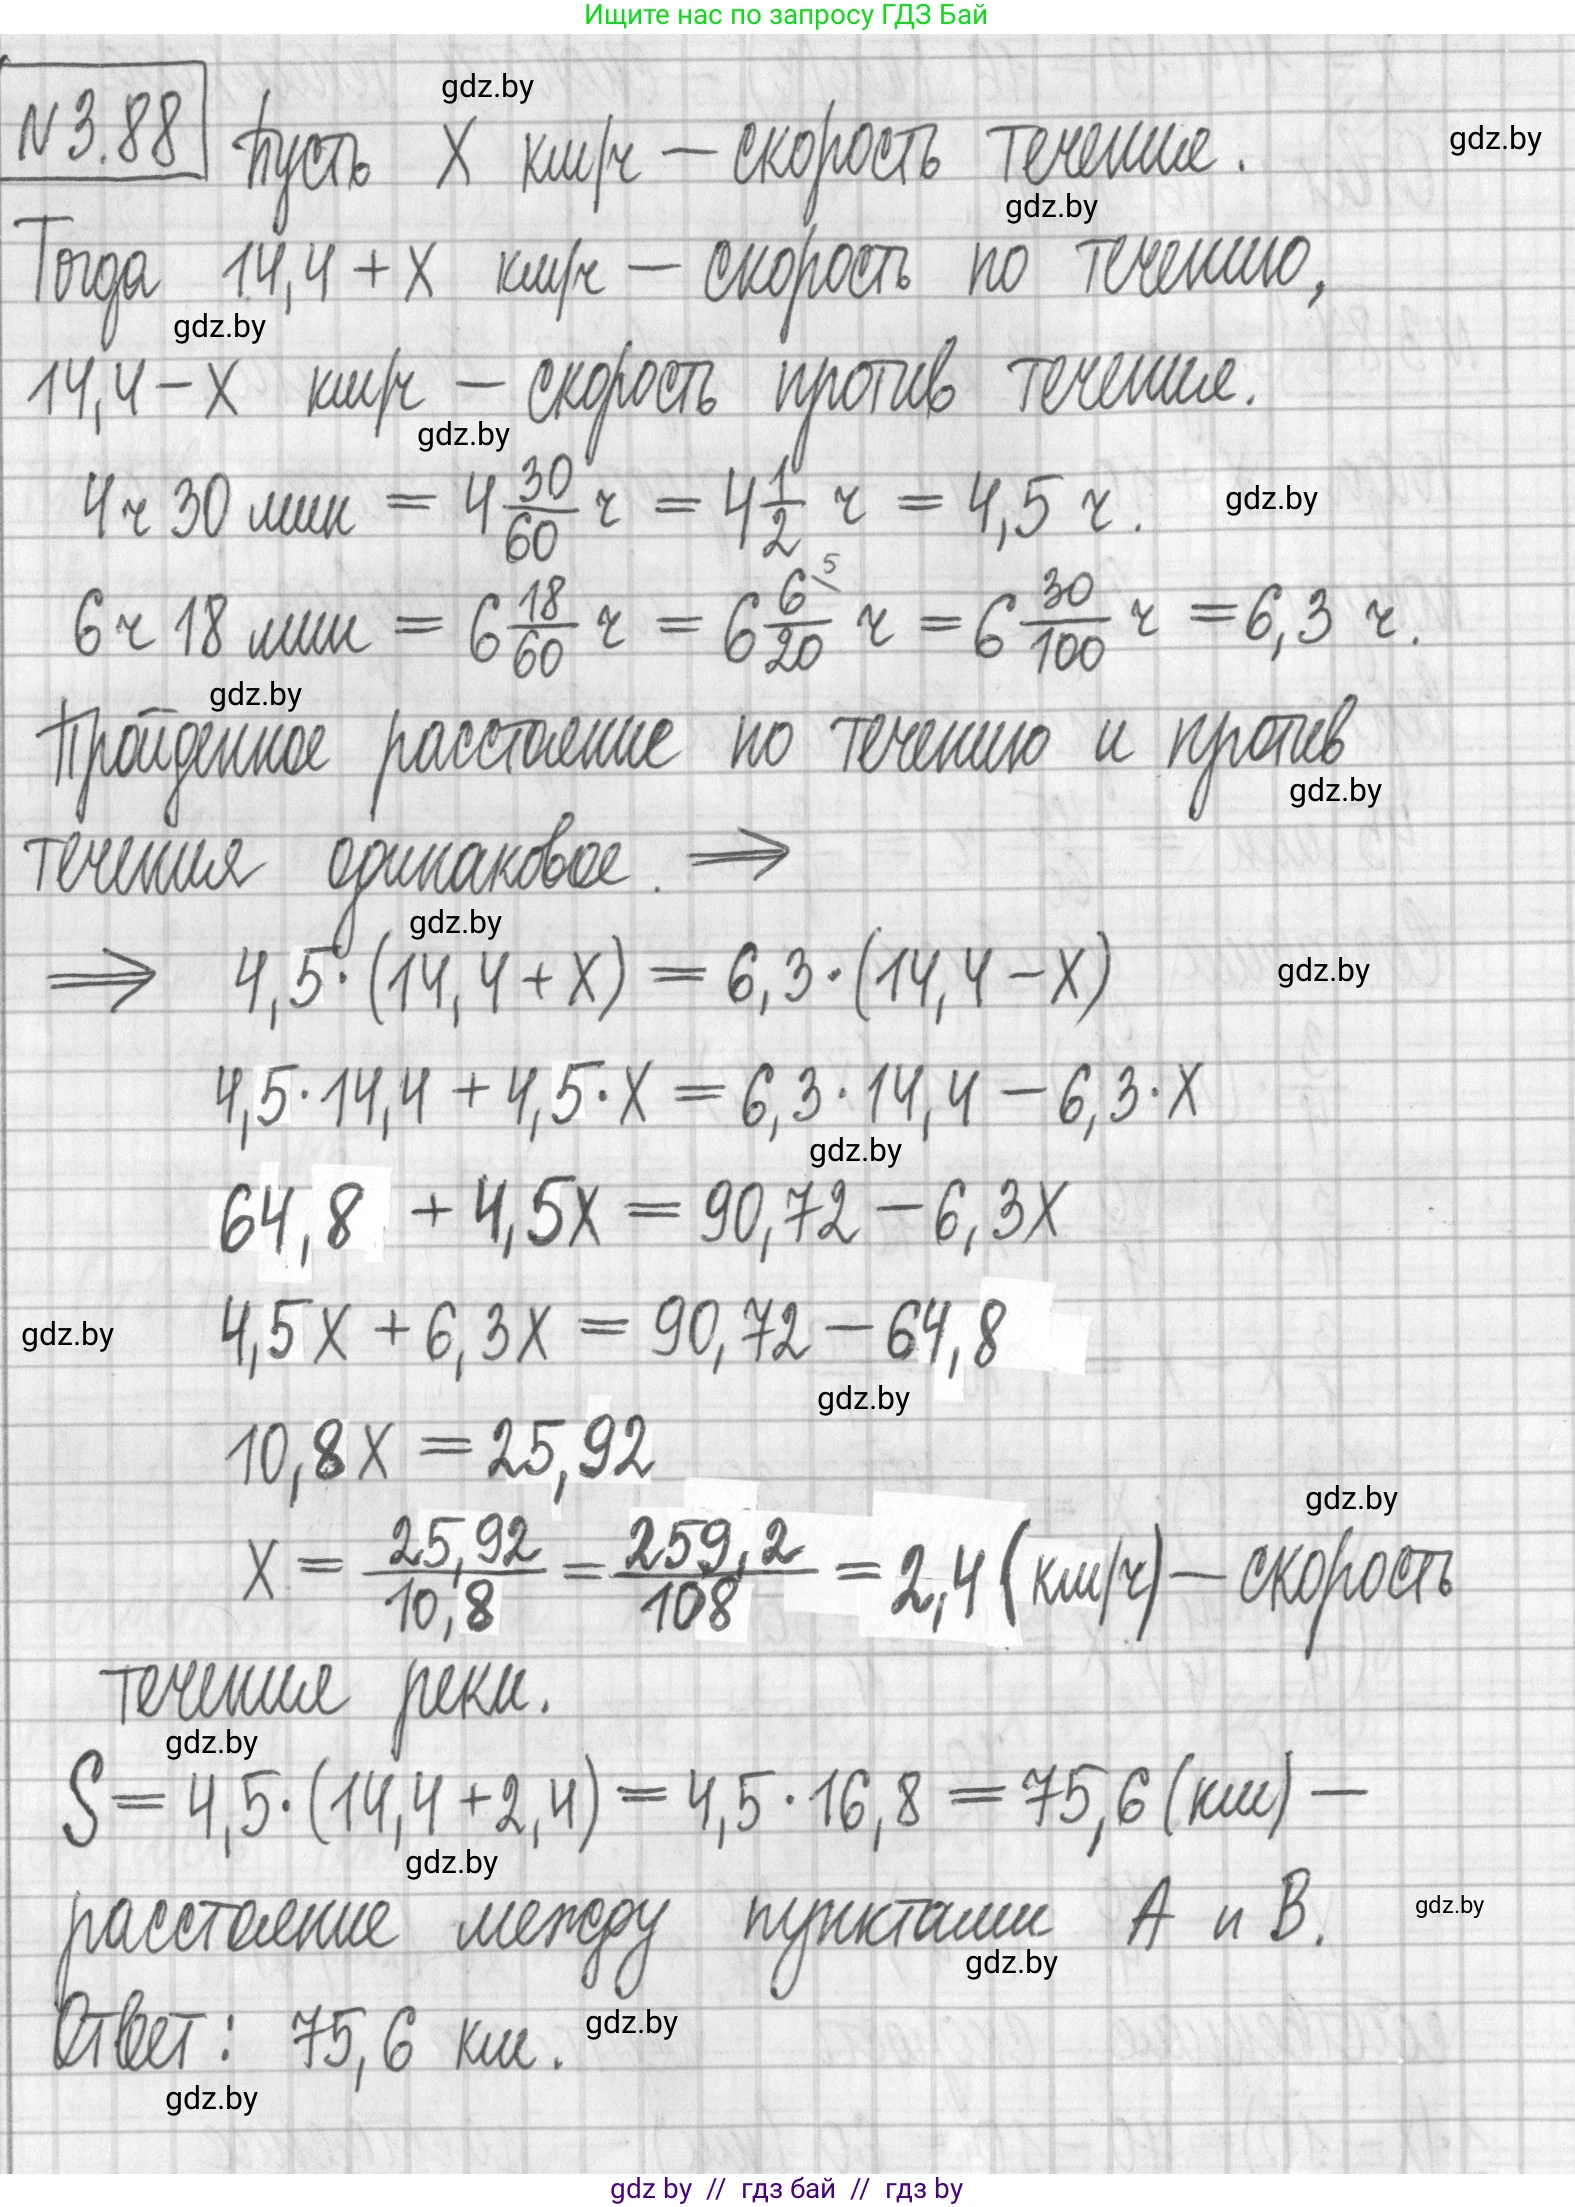 Ищите нас по запросу ГДЗ Бай
gdz.by
N 3.88 Пусть X км/ч — скорость течения.
gdz.by
gdz.by
Тогда 14,4 + X км/ч — скорость по течению,
gdz.by
14,4 – X км/ч — скорость против течения.
gdz.by
4 ч 30 мин = 4 30/60 ч = 4 1/2 ч = 4,5 ч.
gdz.by
6 ч 18 мин = 6 18/60 ч = 6 6\5/20 ч = 6 30/100 ч = 6,3 ч.
gdz.by
Пройденное расстояние по течению и против
gdz.by
течения одинаковое. ⟹
gdz.by
⟹ 4,5·(14,4 + X) = 6,3·(14,4 – X)
gdz.by
4,5·14,4 + 4,5·X = 6,3·14,4 – 6,3·X
gdz.by
64,8 + 4,5X = 90,72 – 6,3X
4,5X + 6,3X = 90,72 – 64,8
gdz.by
gdz.by
10,8X = 25,92
gdz.by
X = 25,92/10,8 = 259,2/108 = 2,4 (км/ч) — скорость
течения реки.
gdz.by
S = 4,5·(14,4 + 2,4) = 4,5·16,8 = 75,6 (км) —
gdz.by
расстояние между пунктами A и B.
gdz.by
gdz.by
Ответ: 75,6 км.
gdz.by
gdz.by
gdz by // гдз бай // гдз by